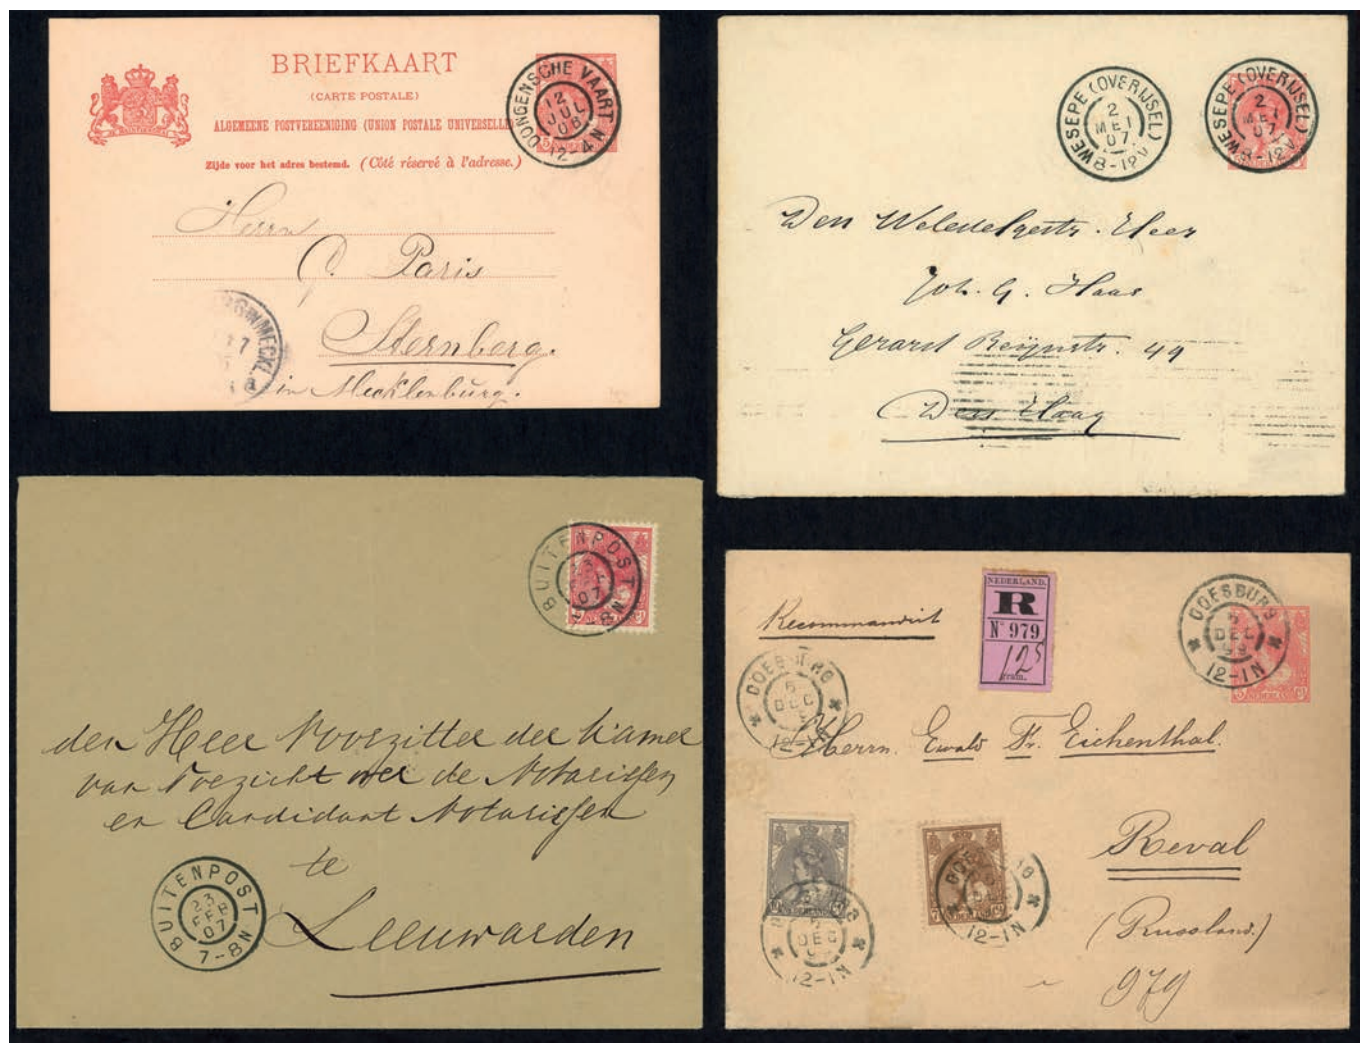 BRIEFKAART
(CARTE POSTALE)
ALGEMEENE POSTVEREENIGING (UNION POSTALE UNIVERSELLE)
Zijde voor het adres bestemd. (Côté réservé à l'adresse.)
OONGENSCHE VAART
12
JUL
08
12-4 N
Herrn
C. Paris
Sternberg.
in Mecklenburg.
MECKL.
WESEPE (OVERIJSEL)
2
MEI
07
8-12V
WESEPE (OVERIJSEL)
2
MEI
07
8-12V
Den Weledelgestr. Heer
Joh. G. Haas
Gerard Reijnstr. 49
Den Haag
BUITENPOST
23
FEB
07
7-8N
den Heer Voorzitter der Kamer
van Toezicht over de Notarissen
en Candidaat Notarissen
te
Leeuwarden
BUITENPOST
23
FEB
07
7-8N
Recommandirt
NEDERLAND.
R
N° 979
125
gram.
DOESBURG
5
DEC
99
12-1N
DOESBURG
5
DEC
12-1N
Herrn. Ewald Fr. Eichenthal.
Reval
(Russland.)
979
DEC
12-1N
12-1N